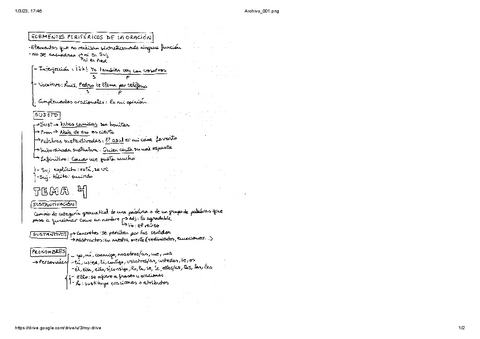 1/3/23, 17:46
Archivo_001.png
ELEMENTOS PERIFÉRICOS DE LA ORACIÓN
-Elementos que no realizan sintácticamente ninguna función
-no se encuadran ni en Suj
ni en Pred
- Interjección: ¡Ah! Yo también voy con vosotros
S P
- Vocativos: Luis, Pedro te llama por teléfono
S P
- Complementos oracionales: En mi opinión
SUJETO
estas camisas son bonitas
→ Pron → Nada de eso es cierto
→ Palabras sustantivadas: El azul es mi color favorito
→ Subordinada sustantiva: Quien canta su mal espanta
→ Infinitivo: Comer me gusta mucho
- Suj. explícito:
- Suj. tácito:
TEMA 4
SUSTANTIVACIÓN
Cambio de categoría gramatical de una palabra o de un grupo de palabras que
pasa a funcionar como un nombre → Adj: lo agradable
SUSTANTIVOS → Concretos: se perciben por los sentidos
→ Abstractos: en nuestra mente (sentimientos, emociones...)
PRONOMBRES
→ Personales
- yo, mí, conmigo, nosotros/as, me, nos
- tú, usted, ti, contigo, vosotros/as, ustedes, te, os
- él, ella, ello, sí, consigo, lo, la, se, le, ellos/as, los, las, les
- ello: se refiere a frases u oraciones
- lo: sustituye oraciones o atributos
https://drive.google.com/drive/u/3/my-drive
1/2